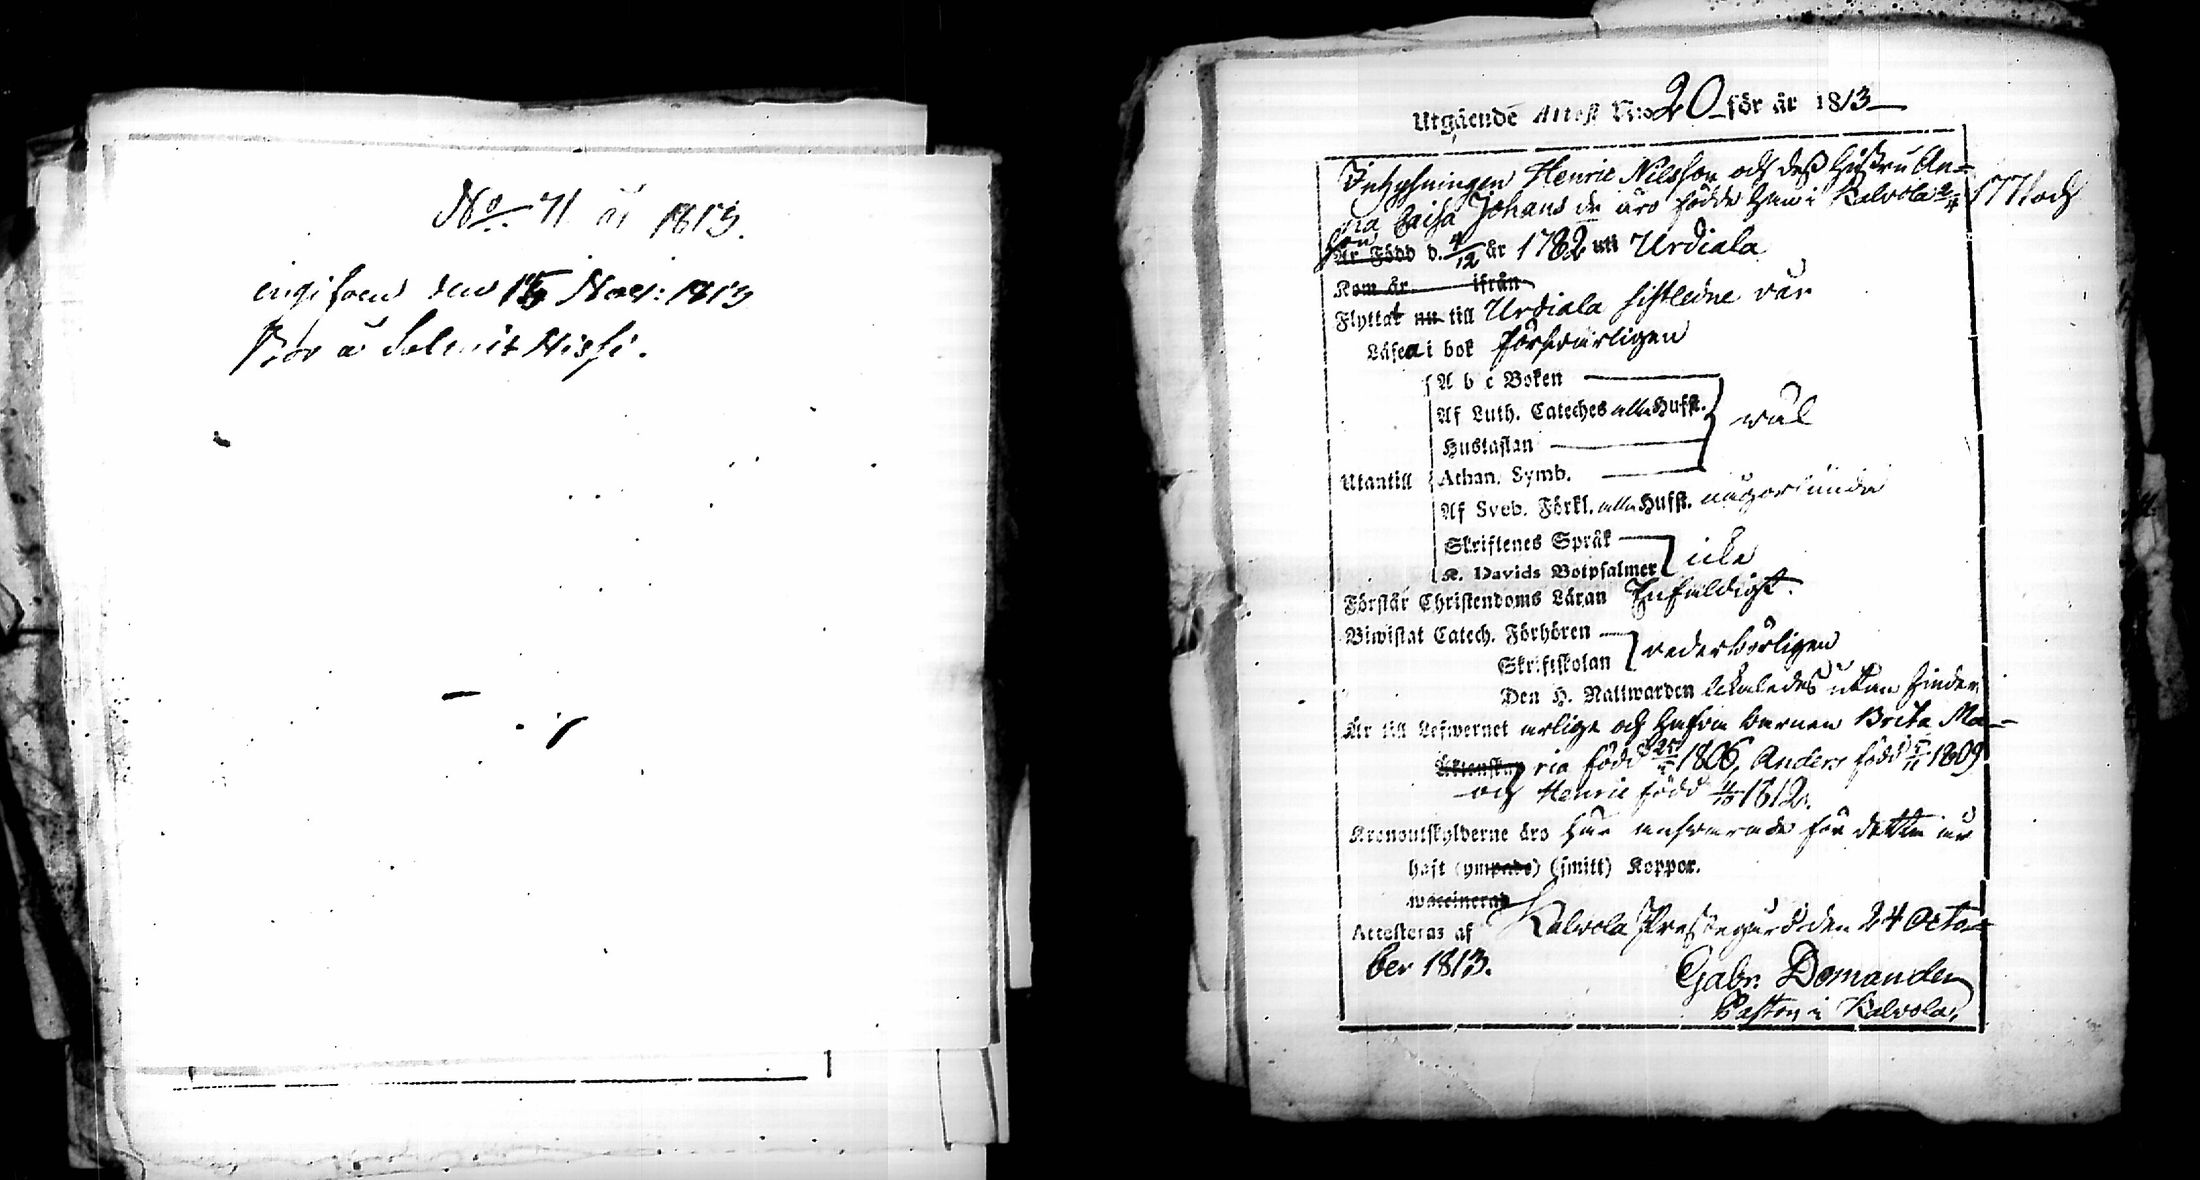 No 71 år 1813.
ingifven den 15 Nov: 1813
Bor å Hissi.
Utgående Attest N:o 20 för år 1813
Inhysningen Henric Nilsson och dess hustru An-
na Caisa Johans de äro födde han i Kalvola 2/4 1771 och
hon
Är Född d. 4/12 år 1782 uti Urdiala
Kom år ifrån
Flyttat nu till Urdiala sistledne vår
Läsea i bok försvarligen
A b c Boken
Af Luth. Cateches alla Hufst.
wäl
Hustaflan
Utantill Athan. Symb.
Af Sveb. Förkl. alla Hufst. någorlunda
Skriftenes Språk
icke
K. Davids Botpsalmer
Förstår Christendoms Läran Enfaldigt.
Biwistat Catech. Förhören
vederbörligen
Skriftskolan
Den H. Nattwarden likaledes utan hinder
Är till Lefwernet ärlige och hafva barnen Brita Ma-
Äktenskap ria född 1806, Anders född 1809
och Henric född 1812.
Kronoutskylderne äro här ansvarade för detta år
haft (ympade) (smitt) Koppor.
waccinerad
Attesteras af Kalvola Prestegård den 24 Octo-
ber 1813.
Gabr. Domander
Pastor i Kalvola.